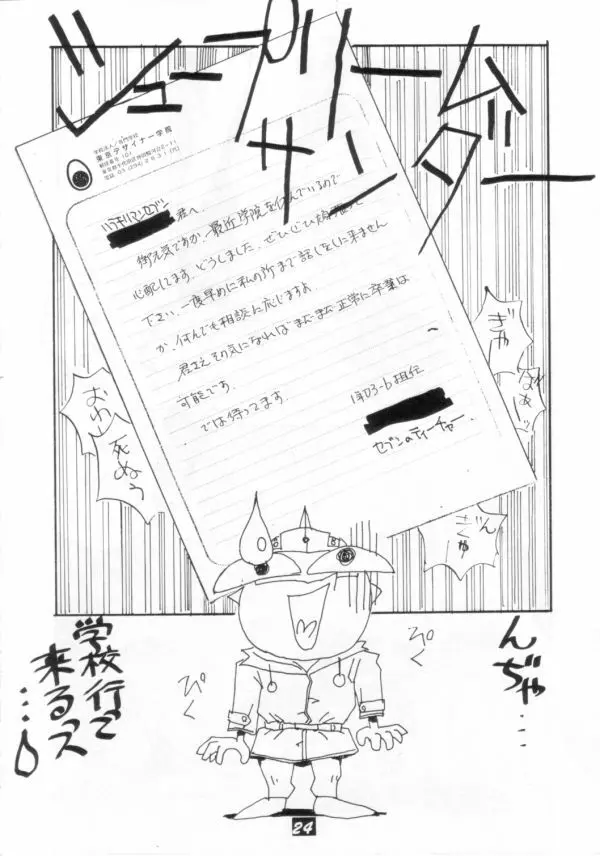 ジュープリームサンダー
学校法人/専門学校
東京デザイナー学院
ハラキリマンセブン
君へ。
御元気ですか、最近学院を休んでいるので
心配してます。どうしました。ぜひぜひ
下さい、一度早めに私の所まで話しをしに来ません
か、何んでも相談に応じますよ
君さえその気になればまだまだ正常に卒業は
可能です。
では待ってます。
1年D3-b担任
セブンのティーチャー
ぎゃ
なあッ
おわ
死ぬう
ぎくゃん
ぷく
ぴく
んぢゃ…
学校行で
来るっス
…。
24